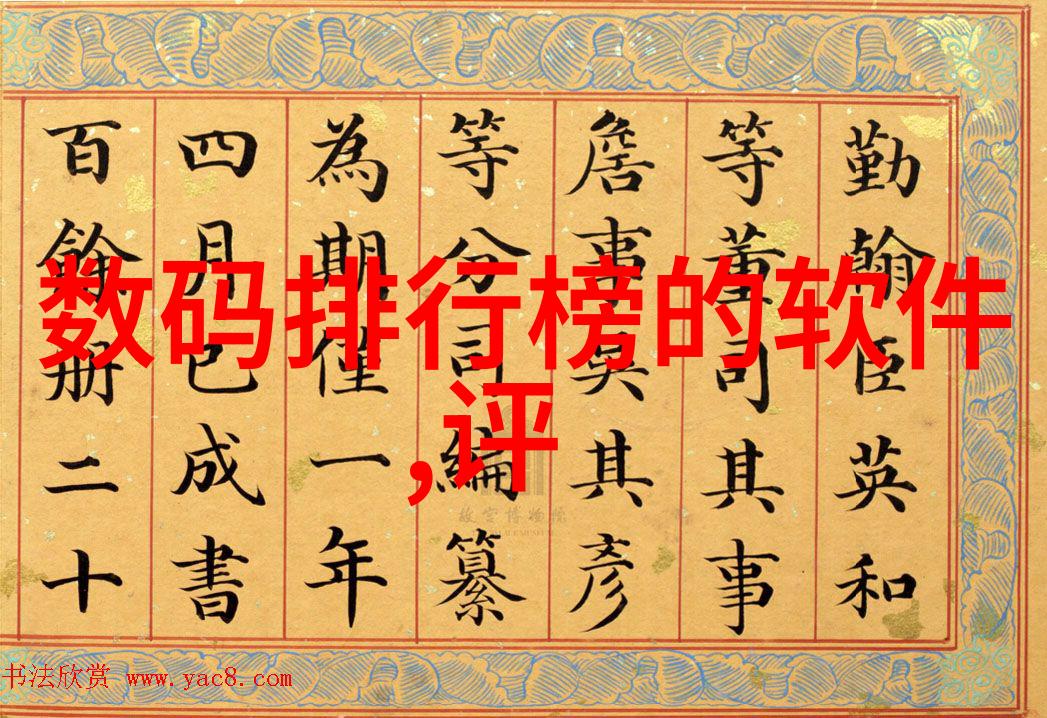 数码排行榜的软件
,评
勤翰臣英和
等董司其事
詹事吳其彥
等分司編纂
為期僅一年
四月已成書
百餘册二十
故宫博物院
书法欣赏 www.yac8.com